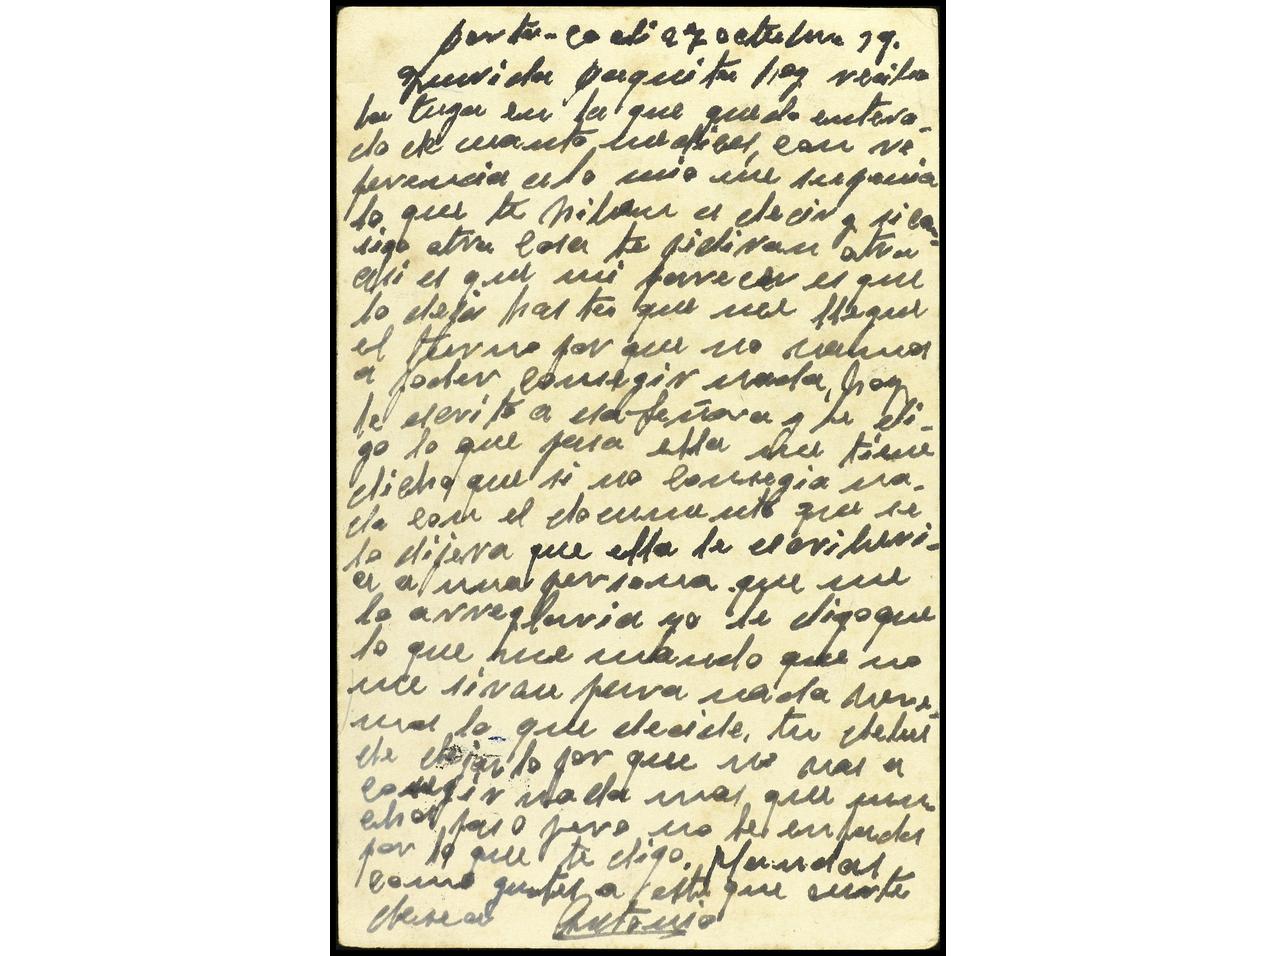 27 octubre 39.
Querida Paquita hoy recibo
la tuya en la que quedo entera-
do de cuanto me dices, con re
ferencia a lo mio me suponia
lo que te hiban a decir y si con-
sigo otra cosa te pidiran otra
asi es que mi parrecer es que
lo dejes hasta que me llegue
el turno por que no vamos
a poder consegir nada, hoy
le escrito a esa señora y le di-
go lo que pasa ella me tiene
dicho que si no consegia na-
da con el documento que se
lo dijera que ella le escriberi-
a a una persona que me
lo arreglaria yo le digo que
lo que me mando que no
me sirven para nada vere-
mos lo que decide, tu debes
de dejarlo por que no vas a
consegir nada mas que mu-
chos pasos pero no te enfades
por lo que te digo. Mandas
como gustes a este que verte
desea Antonio